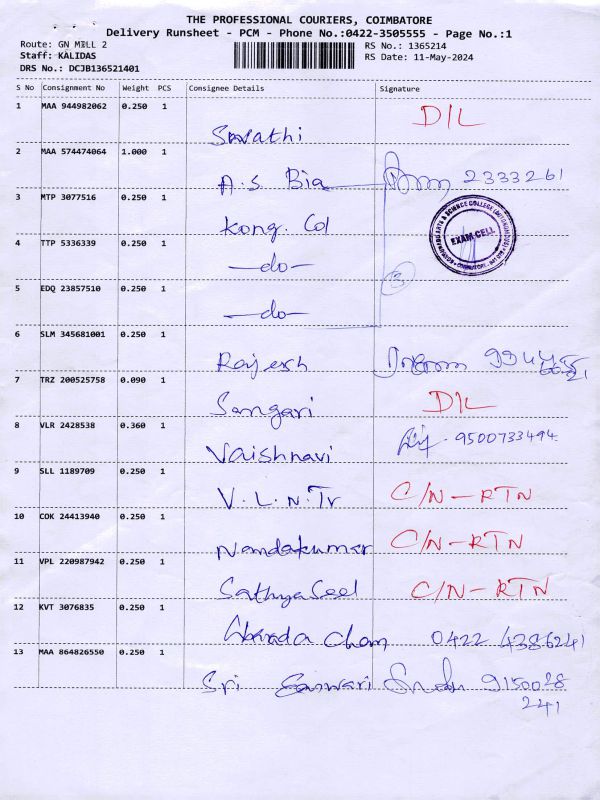 THE PROFESSIONAL COURIERS, COIMBATORE
Delivery Runsheet - PCM - Phone No.:0422-3505555 - Page No.:1
Route: GN MILL 2
RS No.: 1365214
Staff: KALIDAS
RS Date: 11-May-2024
DRS No.: DCJB136521401
S No Consignment No Weight PCS Consignee Details Signature
1 MAA 944982062 0.250 1 Swathi D/L
2 MAA 574474064 1.000 1 A.S. Bia 2333261
3 MTP 3077516 0.250 1 Kong. Col
EXAM CELL
4 TTP 5336339 0.250 1 —do—
3
5 EDQ 23857510 0.250 1 —do—
6 SLM 345681001 0.250 1 Rajesh
7 TRZ 200525758 0.090 1 Sangari D/L
8 VLR 2428538 0.360 1 Vaishnavi 9500733494
9 SLL 1189709 0.250 1 V.L.N.Tr C/N-RTN
10 COK 24413940 0.250 1 Nandakumar C/N-RTN
11 VPL 220987942 0.250 1 Sathya Seel C/N-RTN
12 KVT 3076835 0.250 1 Cham 0422 4386241
13 MAA 864826550 0.250 1 Sri Easwari 9150028
241